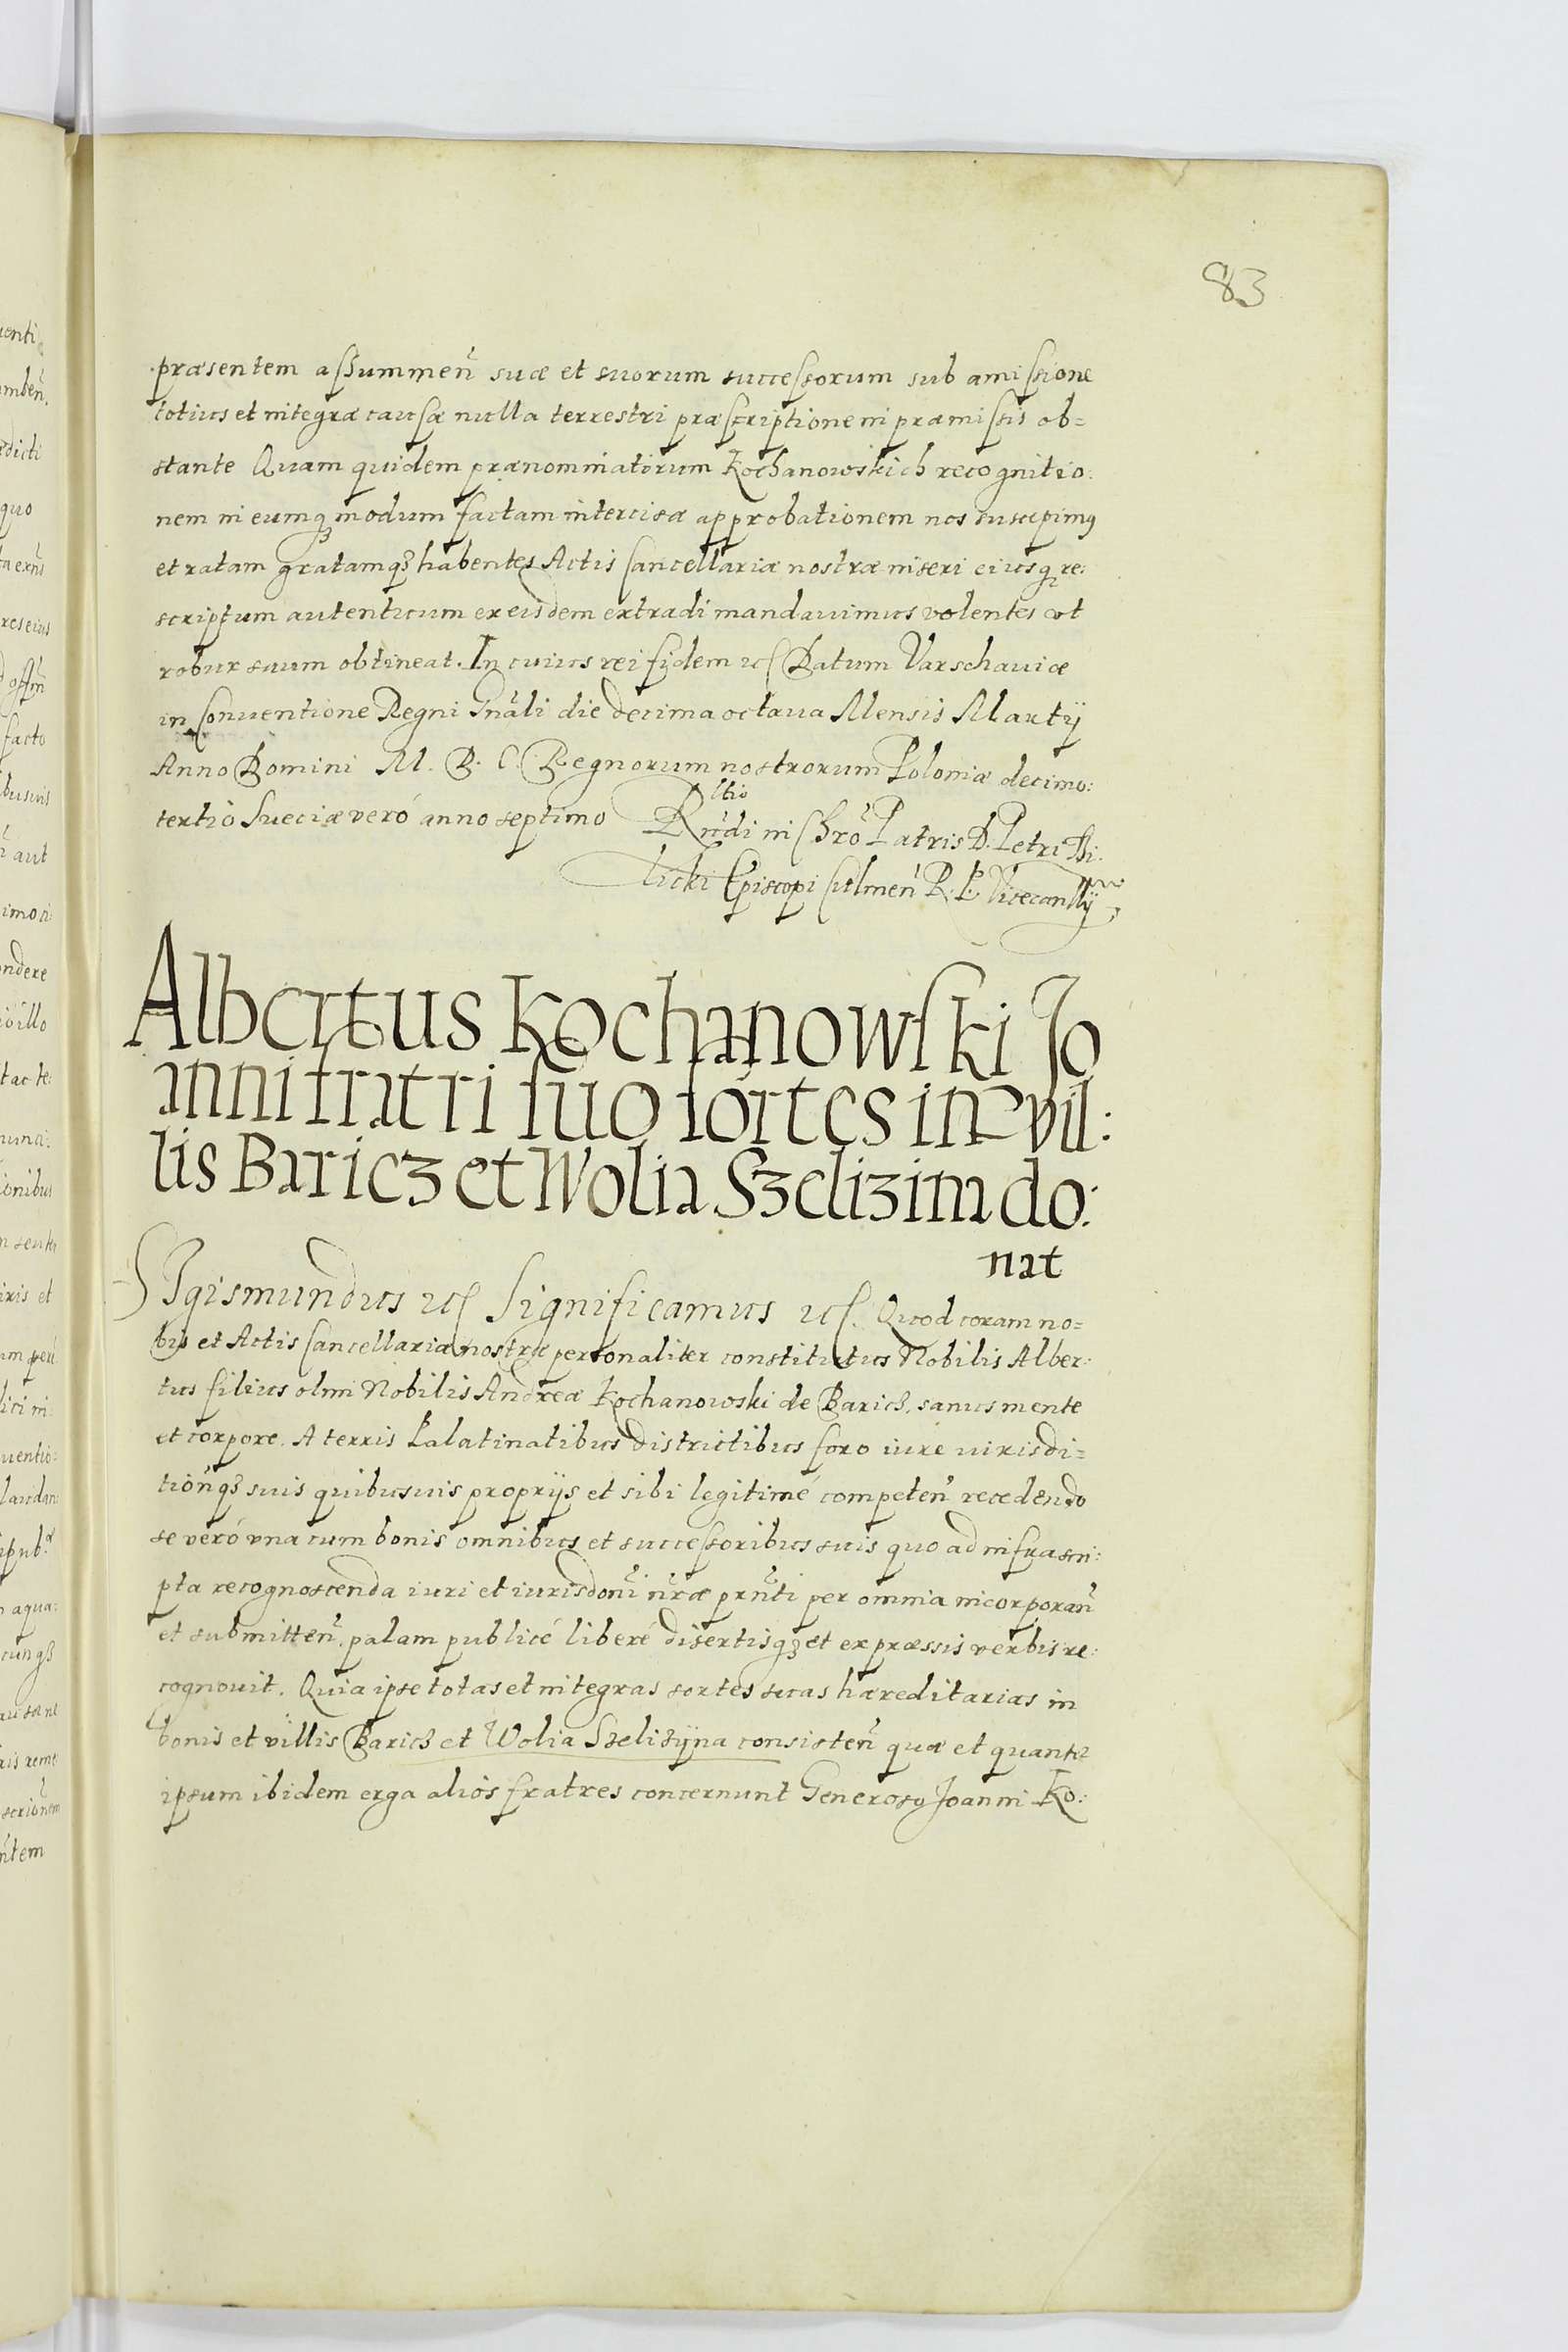 83
præsentem assummeñ suæ et suorum successorum sub amissione
totius et integræ causæ nulla terrestri præscriptione in præmissis ob=
stante Quam quidem prænominatorum Kochanowskich recognitio:
nem in eumq modum factam intercisæ approbationem nos suscepimus
et ratam gratamqꝫ habentes Actis Cancellariæ nostræ inseri eiusq re:
scriptum autenticum ex eisdem extradi mandauimus volentes vt
robur suum obtineat. In cuius rei fidem etc Datum Varschauiæ
in Conuentione Regni Gnãli die decima octaua Mensis Martij
Anno Domini M. D. C. Regnorum nostrorum Poloniæ decimo:
tertio Sueciæ veró anno septimo
Rltio
Rndi in Chrõ Patris D. Petri Ti:
licki Episcopi Culmeñ R. P. Vicecanllrij
Albertus Kochanowski Jo
anni fratri suo sortes in vil:
lis Baricz et Wolia Szelizina do:
nat
Sigismundus etc Significamus etc. Quod coram no=
bis et Actis Cancellariæ nostræ personaliter constitutus Nobilis Alber:
tus filius olim Nobilis Andreæ Kochanowski de Baricz, sanus mente
et corpore. A terris Palatinatibus districtibus foro iure iurisdi=
tioñqꝫ suis quibusuis proprijs et sibi legitimé competeñ recedendo
se veró vna cum bonis omnibus et successoribus suis quo ad infrascri:
pta recognoscenda iuri et iurisdoñi ñræ prñti per omnia incorporañ
et submitteñ, palam publicé liberé disertisqꝫ et expræssis verbis re:
cognouit. Quia ipse totas et integras sortes suas hæreditarias in
bonis et villis Baricz et Wolia Szelizijna consisteñ quæ et quantæ
ipsum ibidem erga alios fratres concernunt Generoso Joanni Ko: